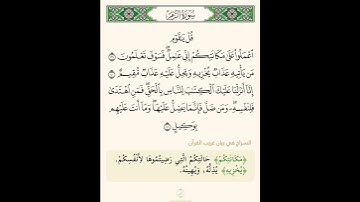 سُورَةُ الزُّمَرِ
قُلْ يَٰقَوْمِ
ٱعْمَلُوا۟ عَلَىٰ مَكَانَتِكُمْ إِنِّى عَٰمِلٌ ۖ فَسَوْفَ تَعْلَمُونَ ٣٩
مَن يَأْتِيهِ عَذَابٌ يُخْزِيهِ وَيَحِلُّ عَلَيْهِ عَذَابٌ مُّقِيمٌ ٤٠
إِنَّآ أَنزَلْنَا عَلَيْكَ ٱلْكِتَٰبَ لِلنَّاسِ بِٱلْحَقِّ ۖ فَمَنِ ٱهْتَدَىٰ
فَلِنَفْسِهِۦ ۖ وَمَن ضَلَّ فَإِنَّمَا يَضِلُّ عَلَيْهَا ۖ وَمَآ أَنتَ عَلَيْهِم
بِوَكِيلٍ ٤١
السراج في بيان غريب القرآن
﴿مَكَانَتِكُمْ﴾ حَالَتِكُمُ الَّتِي رَضِيتُمُوهَا لِأَنْفُسِكُمْ.
﴿يُخْزِيهِ﴾ يُذِلُّهُ، وَيُهِينُهُ.